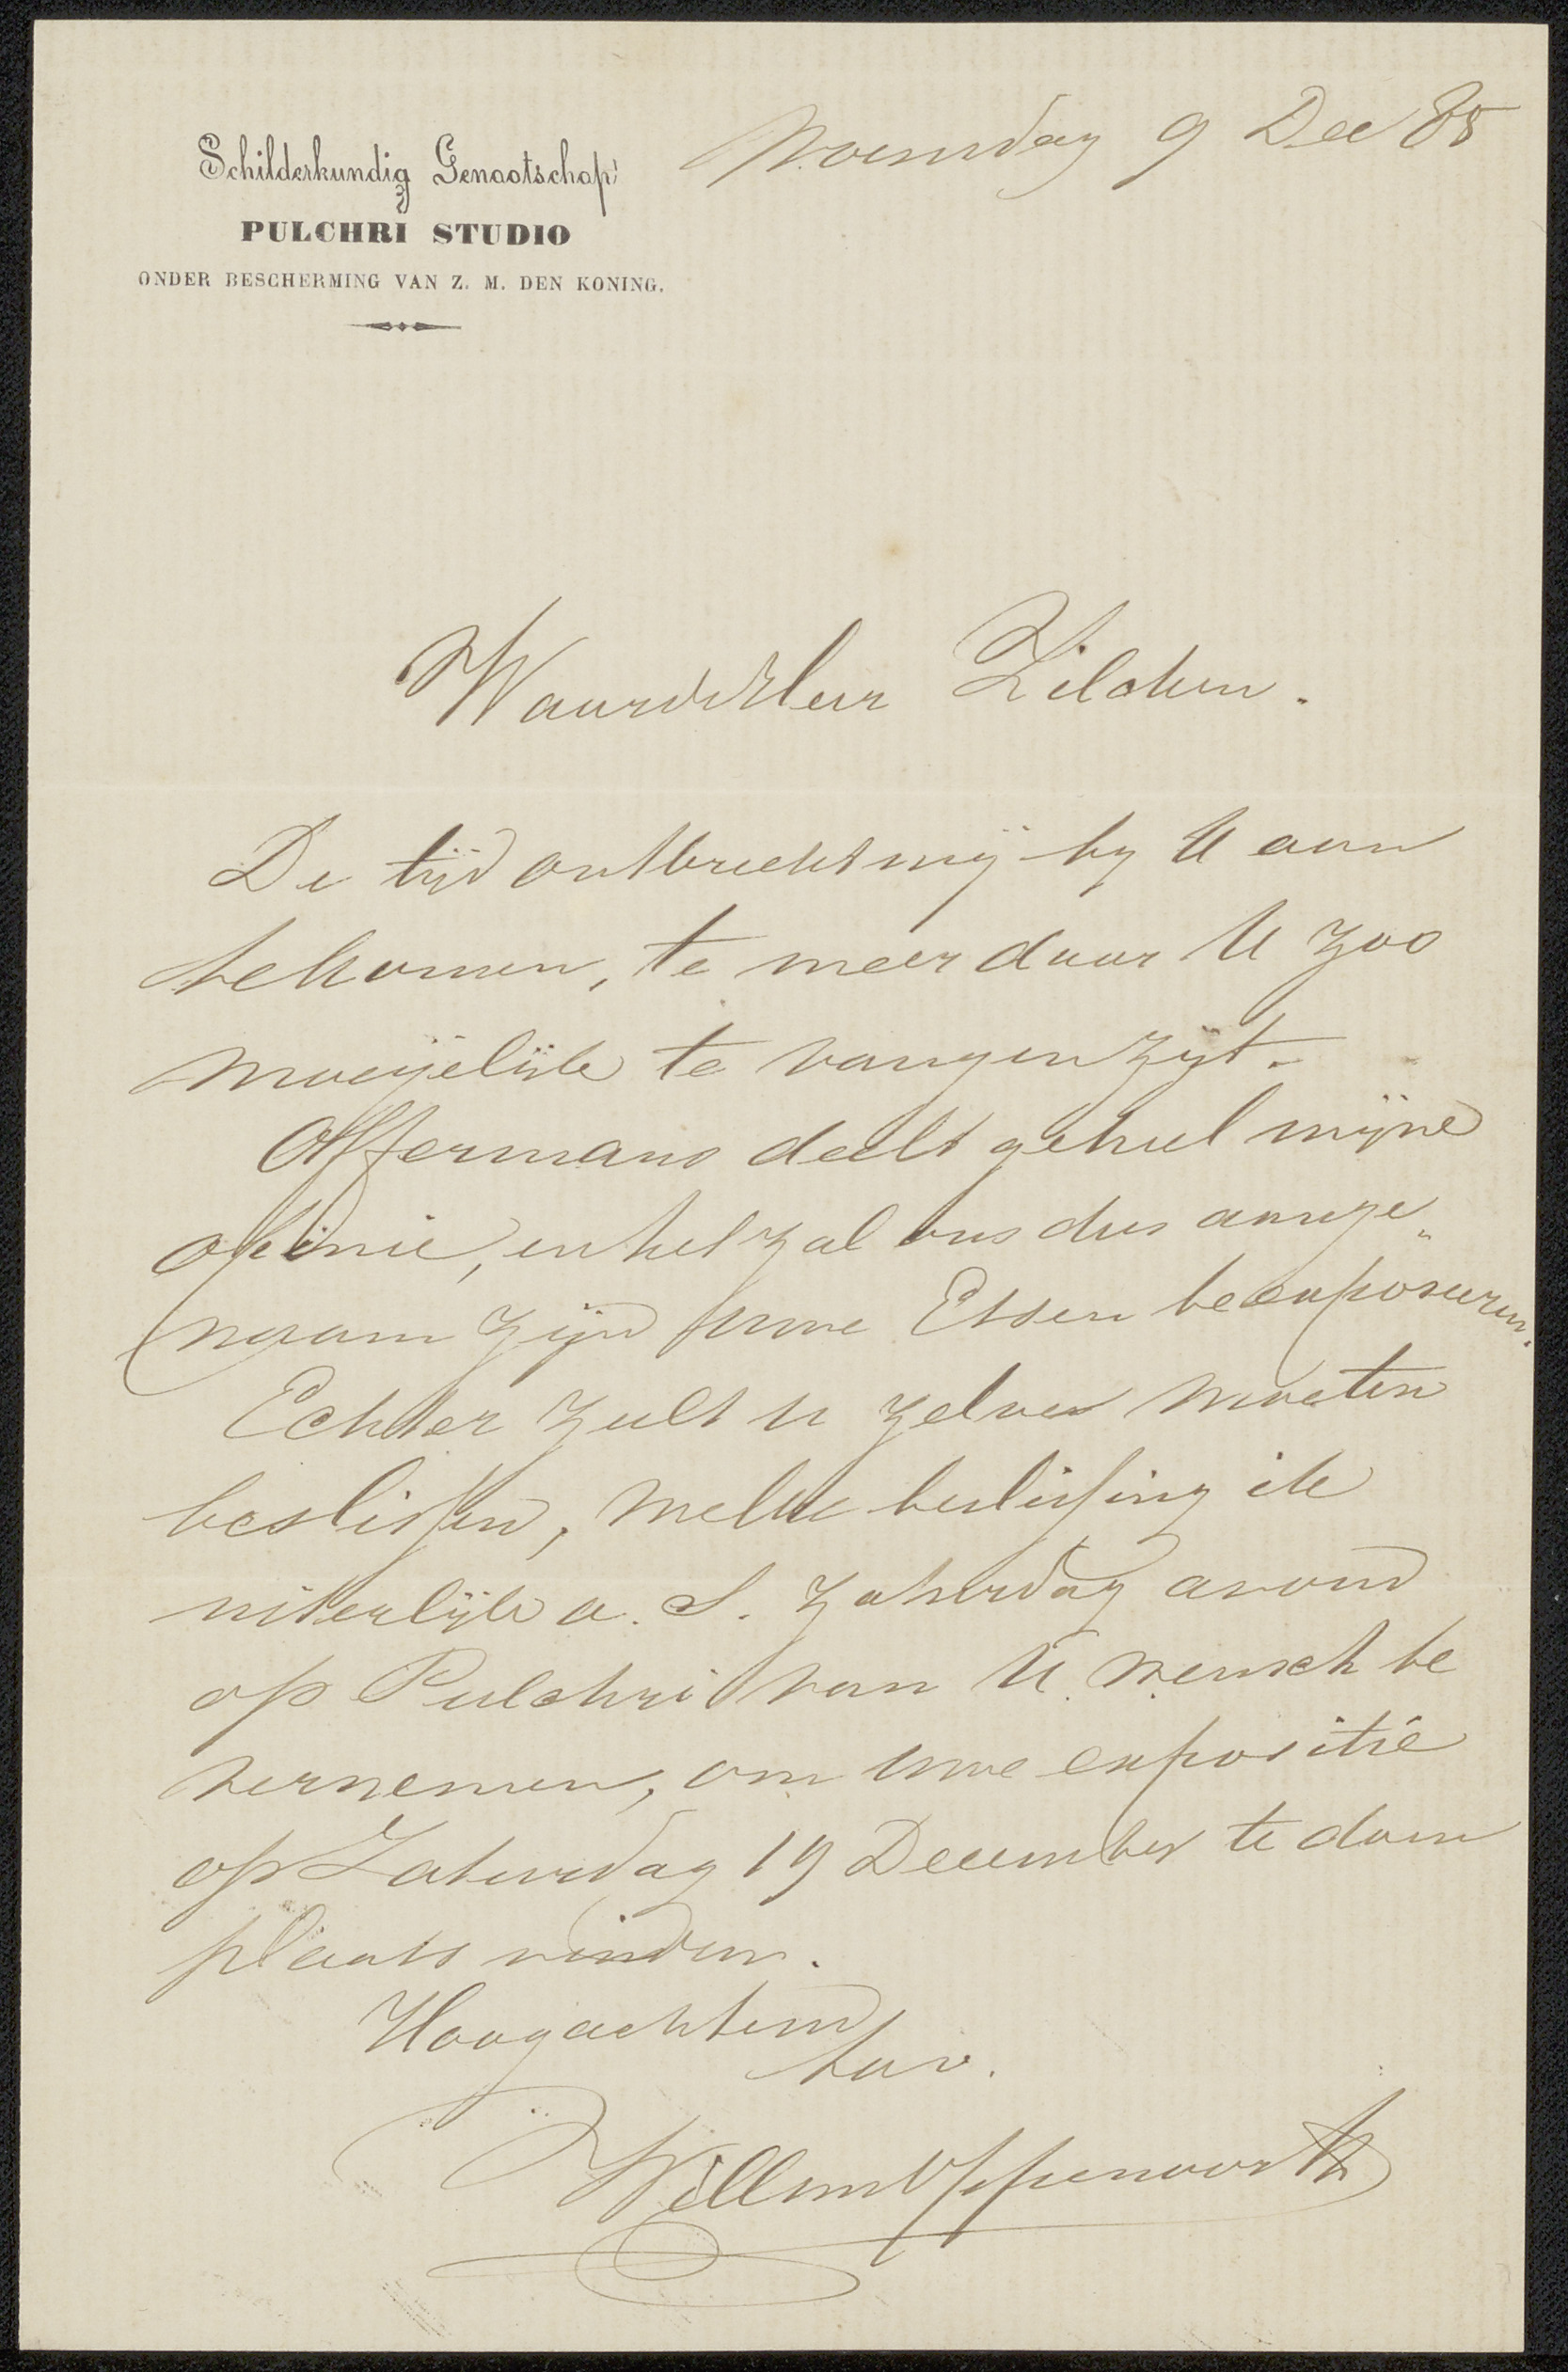 Schilderkundig Genootschap
PULCHRI STUDIO
ONDER BESCHERMING VAN Z. M. DEN KONING.
Woensdag 9 Dec 85
Waarde Heer Zilcken.
De tijd ontbreekt mij by U aan
te komen, te meer daar U zoo
moeyelijk te vangen zijt.
Offermans deelt geheel mijne
opinie, en het zal ons dus aange„
naam zijn Uwe Etsen te exposeeren.
Echter zult U zelve moeten
beslissen, welke beslissing ik
uiterlijk a. S. Zaturdag avond
op Pulchri van U wensch te
vernemen, om Uwe expositie
op Zaturdag 19 December te doen
plaats vinden.
Hoogachtend
Willem Oppenoorth